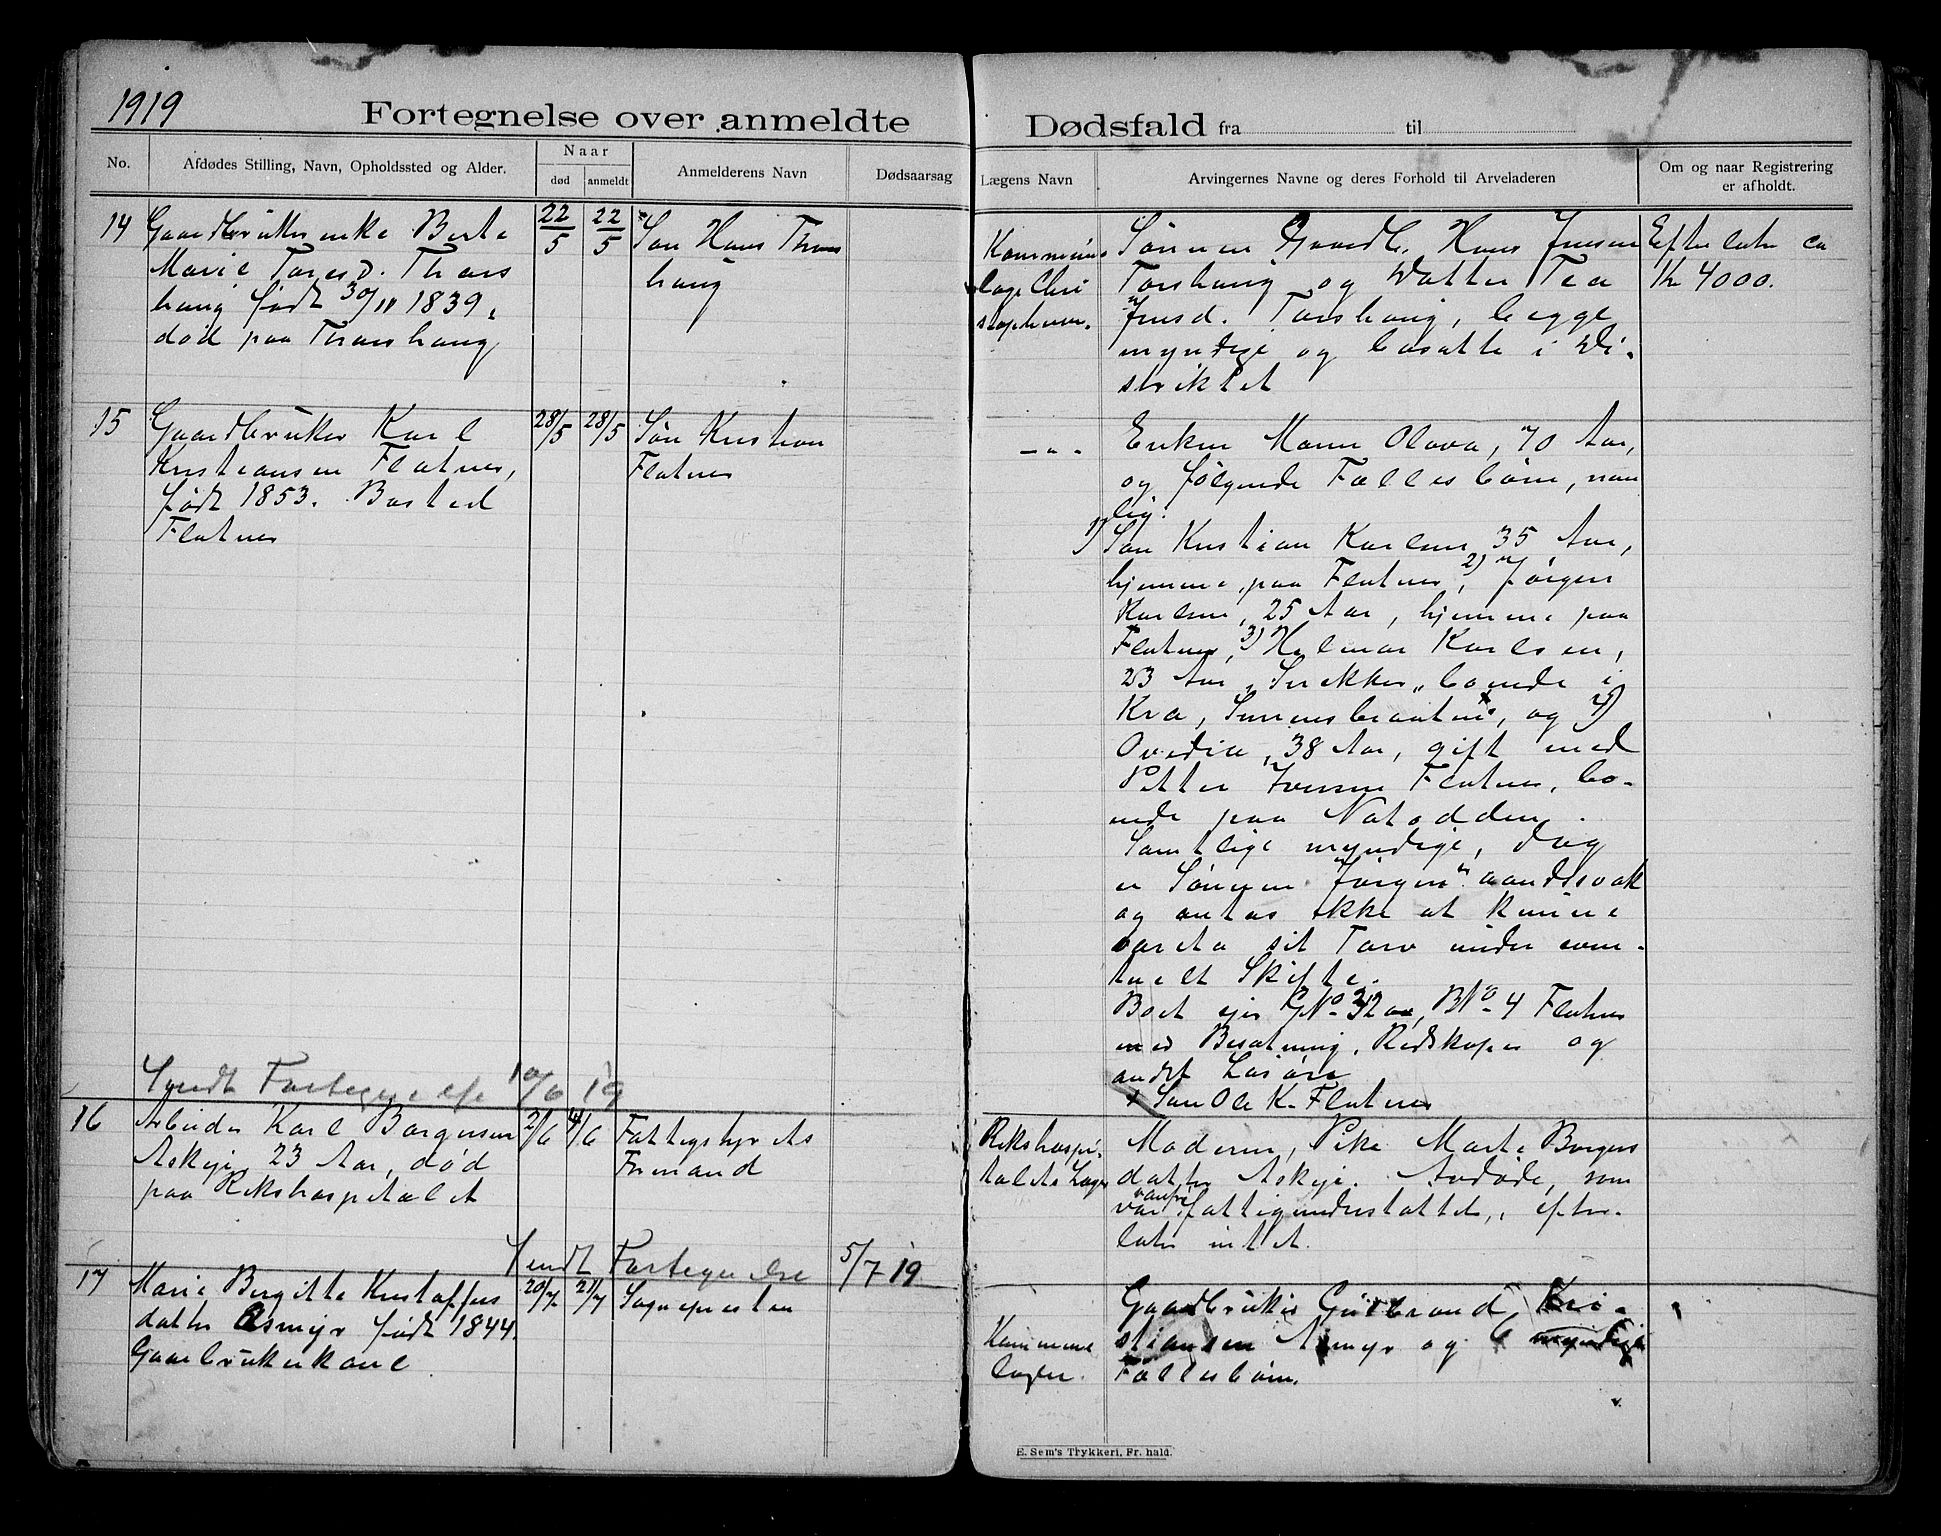 1919
Fortegnelse over anmeldte Dødsfald fra til
No.
Afdødes Stilling, Navn, Opholdssted og Alder.
Naar
død
anmeldt
Anmelderens Navn
Dødsaarsag
Lægens Navn
Arvingernes Navne og deres Forhold til Arveladeren
Om og naar Registrering
er afholdt.
14
Gaardbrukerenke Berte
Marie Toresd. Thors
haug født 30/11 1839,
død paa Thorshaug
22/5
22/5
Søn Hans Thors
haug
Kommune
læge Chri
stophersen.
Sønnen Gaardb. Hans Jensen
Torshaug og Datter Tea
Jensd. Torshaug, begge
myndige og bosatte i Di-
striktet
Efterlater ca
Kr 4000.
15
Gaardbruker Karl
Kristiansen Flatner,
født 1853. Bosted
Flatner
28/5
28/5
Søn Kristian
Flatner
- " -
Enken Maren Olava, 70 Aar,
og følgende Fællesbørn, nem
lig:
1) Søn Kristian Karlsen, 35 Aar,
hjemme paa Flatner, 2) Jørgen
Karlsen, 25 Aar, hjemme paa
Flatner, 3) Helmar Karlsen,
23 Aar, Snekker, boende i
Kra, og 4)
Ovedia, 38 Aar, gift med
Petter Iversen Flatner, bo-
ende paa Notodden.
Samtlige myndige, dog
er Sønnen "Jørgen" aandssvak
og antas ikke at kunne
vareta sit Tarv under even-
tuelt Skifte.
Boet eier GNo 32, BNo 4 Flatner
med Besætning, Redskaper og
andet Løsøre
x Søn Ole K. Flatner
Sendt Fortegnelse 10/6 19
16
Arbeider Karl Borgersen
Askeje, 23 Aar, død
paa Rikshospitalet
2/6
4/6
Fattigstyrets
Formand
Rikshospi-
talets Læger
Moderen, Pike Marte Borgers
datter Askeje. Avdøde, som
var fattigunderstøttet, efter-
later intet.
Sendt Fortegnelse 5/7 19
17
Marie Birgitte Kristoffers
datter Asmyr født 1844.
Gaardbrukerkone
20/7
21/7
Sognepresten
Kommune
lægen.
Gaardbruker Gulbrand Kri-
stiansen Asmyr og 6 myndige
Fællesbørn.
E. Sem's Trykkeri, Fr. hald.